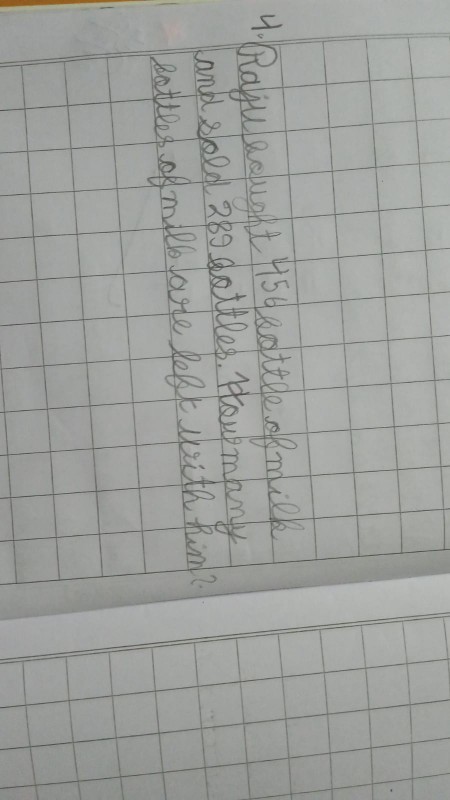 4. Raju bought 456 bottle of milk
and sold 289 bottles. How many
bottles of milk are left with him?